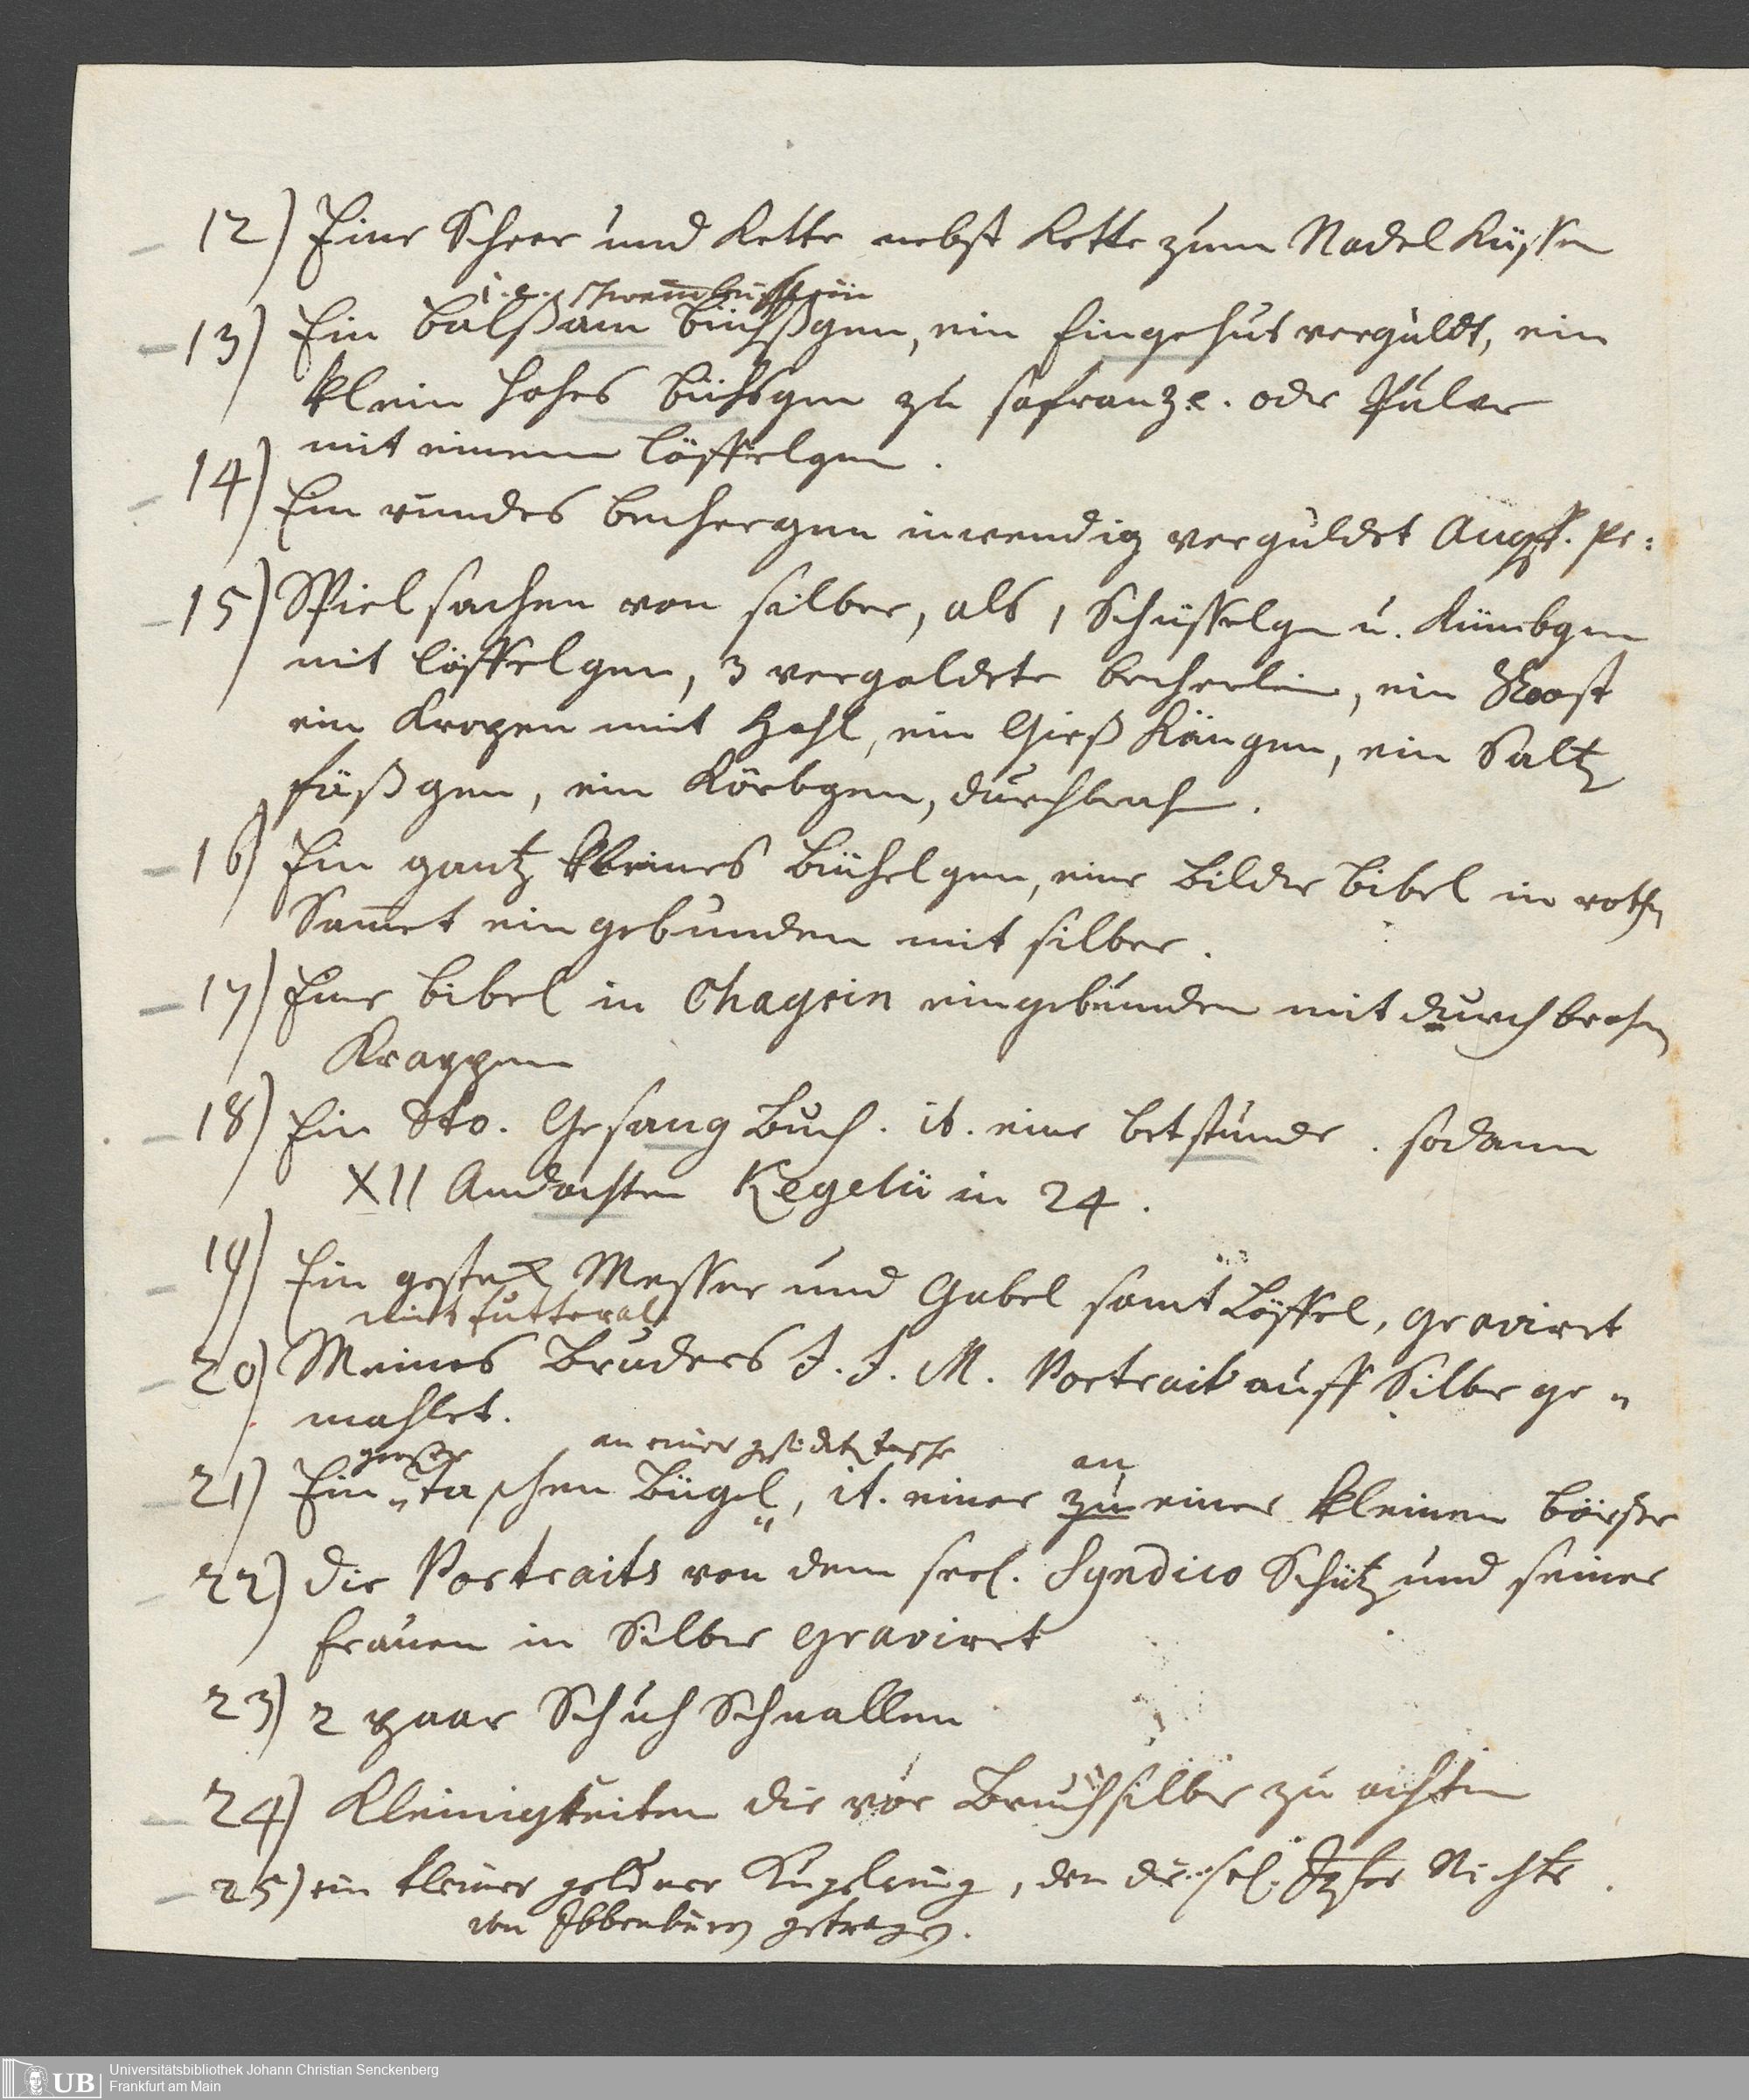 12) Eine Scheer und Kette nebst Kette zum Nadel Küssen
i. e. Schwambüchslein
13) Ein Balßam Büchßgen, ein Fingerhut verguldt, ein
klein hohes Büchsgen zu safran z.e. oder Pulver
mit einem Löffelgen.
14) Ein rundes Bechergen inwendig verguldet Augsp. Pr:
15) Spielsachen von silber, als 1 Schüsselgen u. Kümbgen
mit Löffelgen, 3 vergoldete becherlein, ein Roost
ein Kropen mit Hahl, ein Gieß Kängen, ein Saltz
fäßgen, ein Körbgen, durchbrochen.
16) Ein gantz kleines Büchelgen, eine Bilder Bibel in rothen
Sam̄et eingebunden mit silber.
17) Eine Bibel in Chagrin eingebunden mit durchbrochen
Krappen
18) Ein 8to. Gesang Buch. it. eine betstunde. sodann
XII Andachten Kegelii in 24.
19) Ein Messer und Gabel samt Löffel, graviret
mit futteral
20) Meines Bruders J. J. M. Portrait auff Silber ge-
mahlet.
grosser an einer tasche an
21) Ein Taschen Bügel, it. einer zu einer kleinen börse
22) die Portraits von dem seel. Syndico Schütz und seiner
frauen in Silber graviret
23) 2 paar Schuh Schnallen
24) Kleinigkeiten die vor Bruchsilber zu achten
25) ein kleiner goldner Kugelring, den die sel. Jgfer Nichte
von Ibbenbüren getragen.
Universitätsbibliothek Johann Christian Senckenberg
Frankfurt am Main
UB